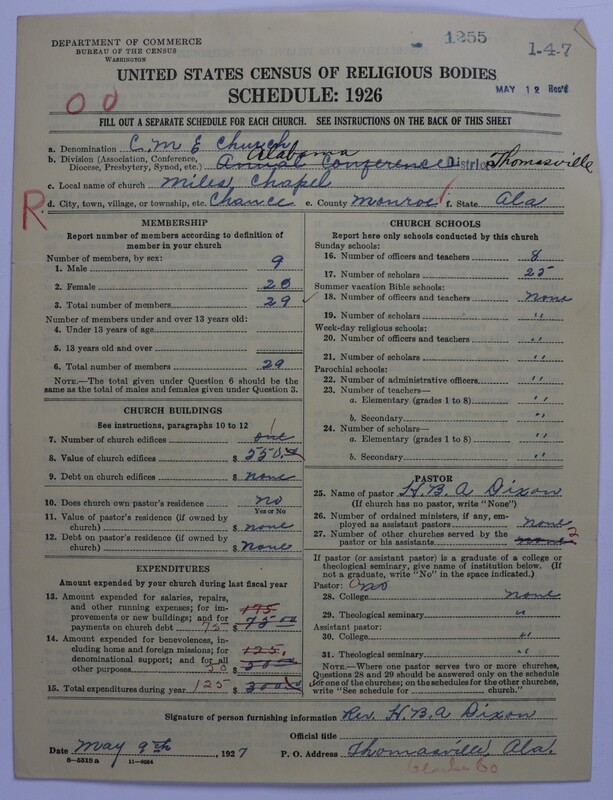 DEPARTMENT OF COMMERCE
BUREAU OF THE CENSUS
WASHINGTON
1255
1-4-7
UNITED STATES CENSUS OF RELIGIOUS BODIES
MAY 12 Rec'd
SCHEDULE: 1926
O O
FILL OUT A SEPARATE SCHEDULE FOR EACH CHURCH. SEE INSTRUCTIONS ON THE BACK OF THIS SHEET
a. Denomination C. M E Church
b. Division (Association, Conference, Diocese, Presbytery, Synod, etc.) Annual Alabama Conference District Thomasville
c. Local name of church Miles Chapel
R
d. City, town, village, or township, etc. Chance e. County Monroe f. State Ala
MEMBERSHIP
Report number of members according to definition of
member in your church
Number of members, by sex:
1. Male 9
2. Female 20
3. Total number of members 29
Number of members under and over 13 years old:
4. Under 13 years of age
5. 13 years old and over
6. Total number of members 29
NOTE.—The total given under Question 6 should be the
same as the total of males and females given under Question 3.
CHURCH BUILDINGS
See instructions, paragraphs 10 to 12
7. Number of church edifices one
8. Value of church edifices $ 550.
9. Debt on church edifices $ none
10. Does church own pastor's residence No
Yes or No
11. Value of pastor's residence (if owned by
church) $ none
12. Debt on pastor's residence (if owned by
church) $ None
EXPENDITURES
Amount expended by your church during last fiscal year
13. Amount expended for salaries, repairs,
and other running expenses; for im-
provements or new buildings; and for
payments on church debt 75 $ 175 75.00
14. Amount expended for benevolences, in-
cluding home and foreign missions; for
denominational support; and for all
other purposes 50 $ 125. 50.00
15. Total expenditures during year 125 $ 300.
CHURCH SCHOOLS
Report here only schools conducted by this church
Sunday schools:
16. Number of officers and teachers 8
17. Number of scholars 25
Summer vacation Bible schools:
18. Number of officers and teachers None
19. Number of scholars "
Week-day religious schools:
20. Number of officers and teachers "
21. Number of scholars "
Parochial schools:
22. Number of administrative officers "
23. Number of teachers—
a. Elementary (grades 1 to 8) "
b. Secondary "
24. Number of scholars—
a. Elementary (grades 1 to 8) "
b. Secondary "
PASTOR
25. Name of pastor H. B. A Dixon
(If church has no pastor, write "None")
26. Number of ordained ministers, if any, em-
ployed as assistant pastors none
27. Number of other churches served by the
pastor or his assistants none 2
If pastor (or assistant pastor) is a graduate of a college or
theological seminary, give name of institution below. (If
not a graduate, write "No" in the space indicated.)
Pastor: No
28. College none
29. Theological seminary "
Assistant pastor:
30. College "
31. Theological seminary "
NOTE.—Where one pastor serves two or more churches,
Questions 28 and 29 should be answered only on the schedule
for one of the churches; on the schedules for the other churches,
write "See schedule for church."
Signature of person furnishing information Rev. H. B. A Dixon
Official title
Date May 9th, 1927 P. O. Address Thomasville, Ala.
8-5318a 11-9084
Clarke Co